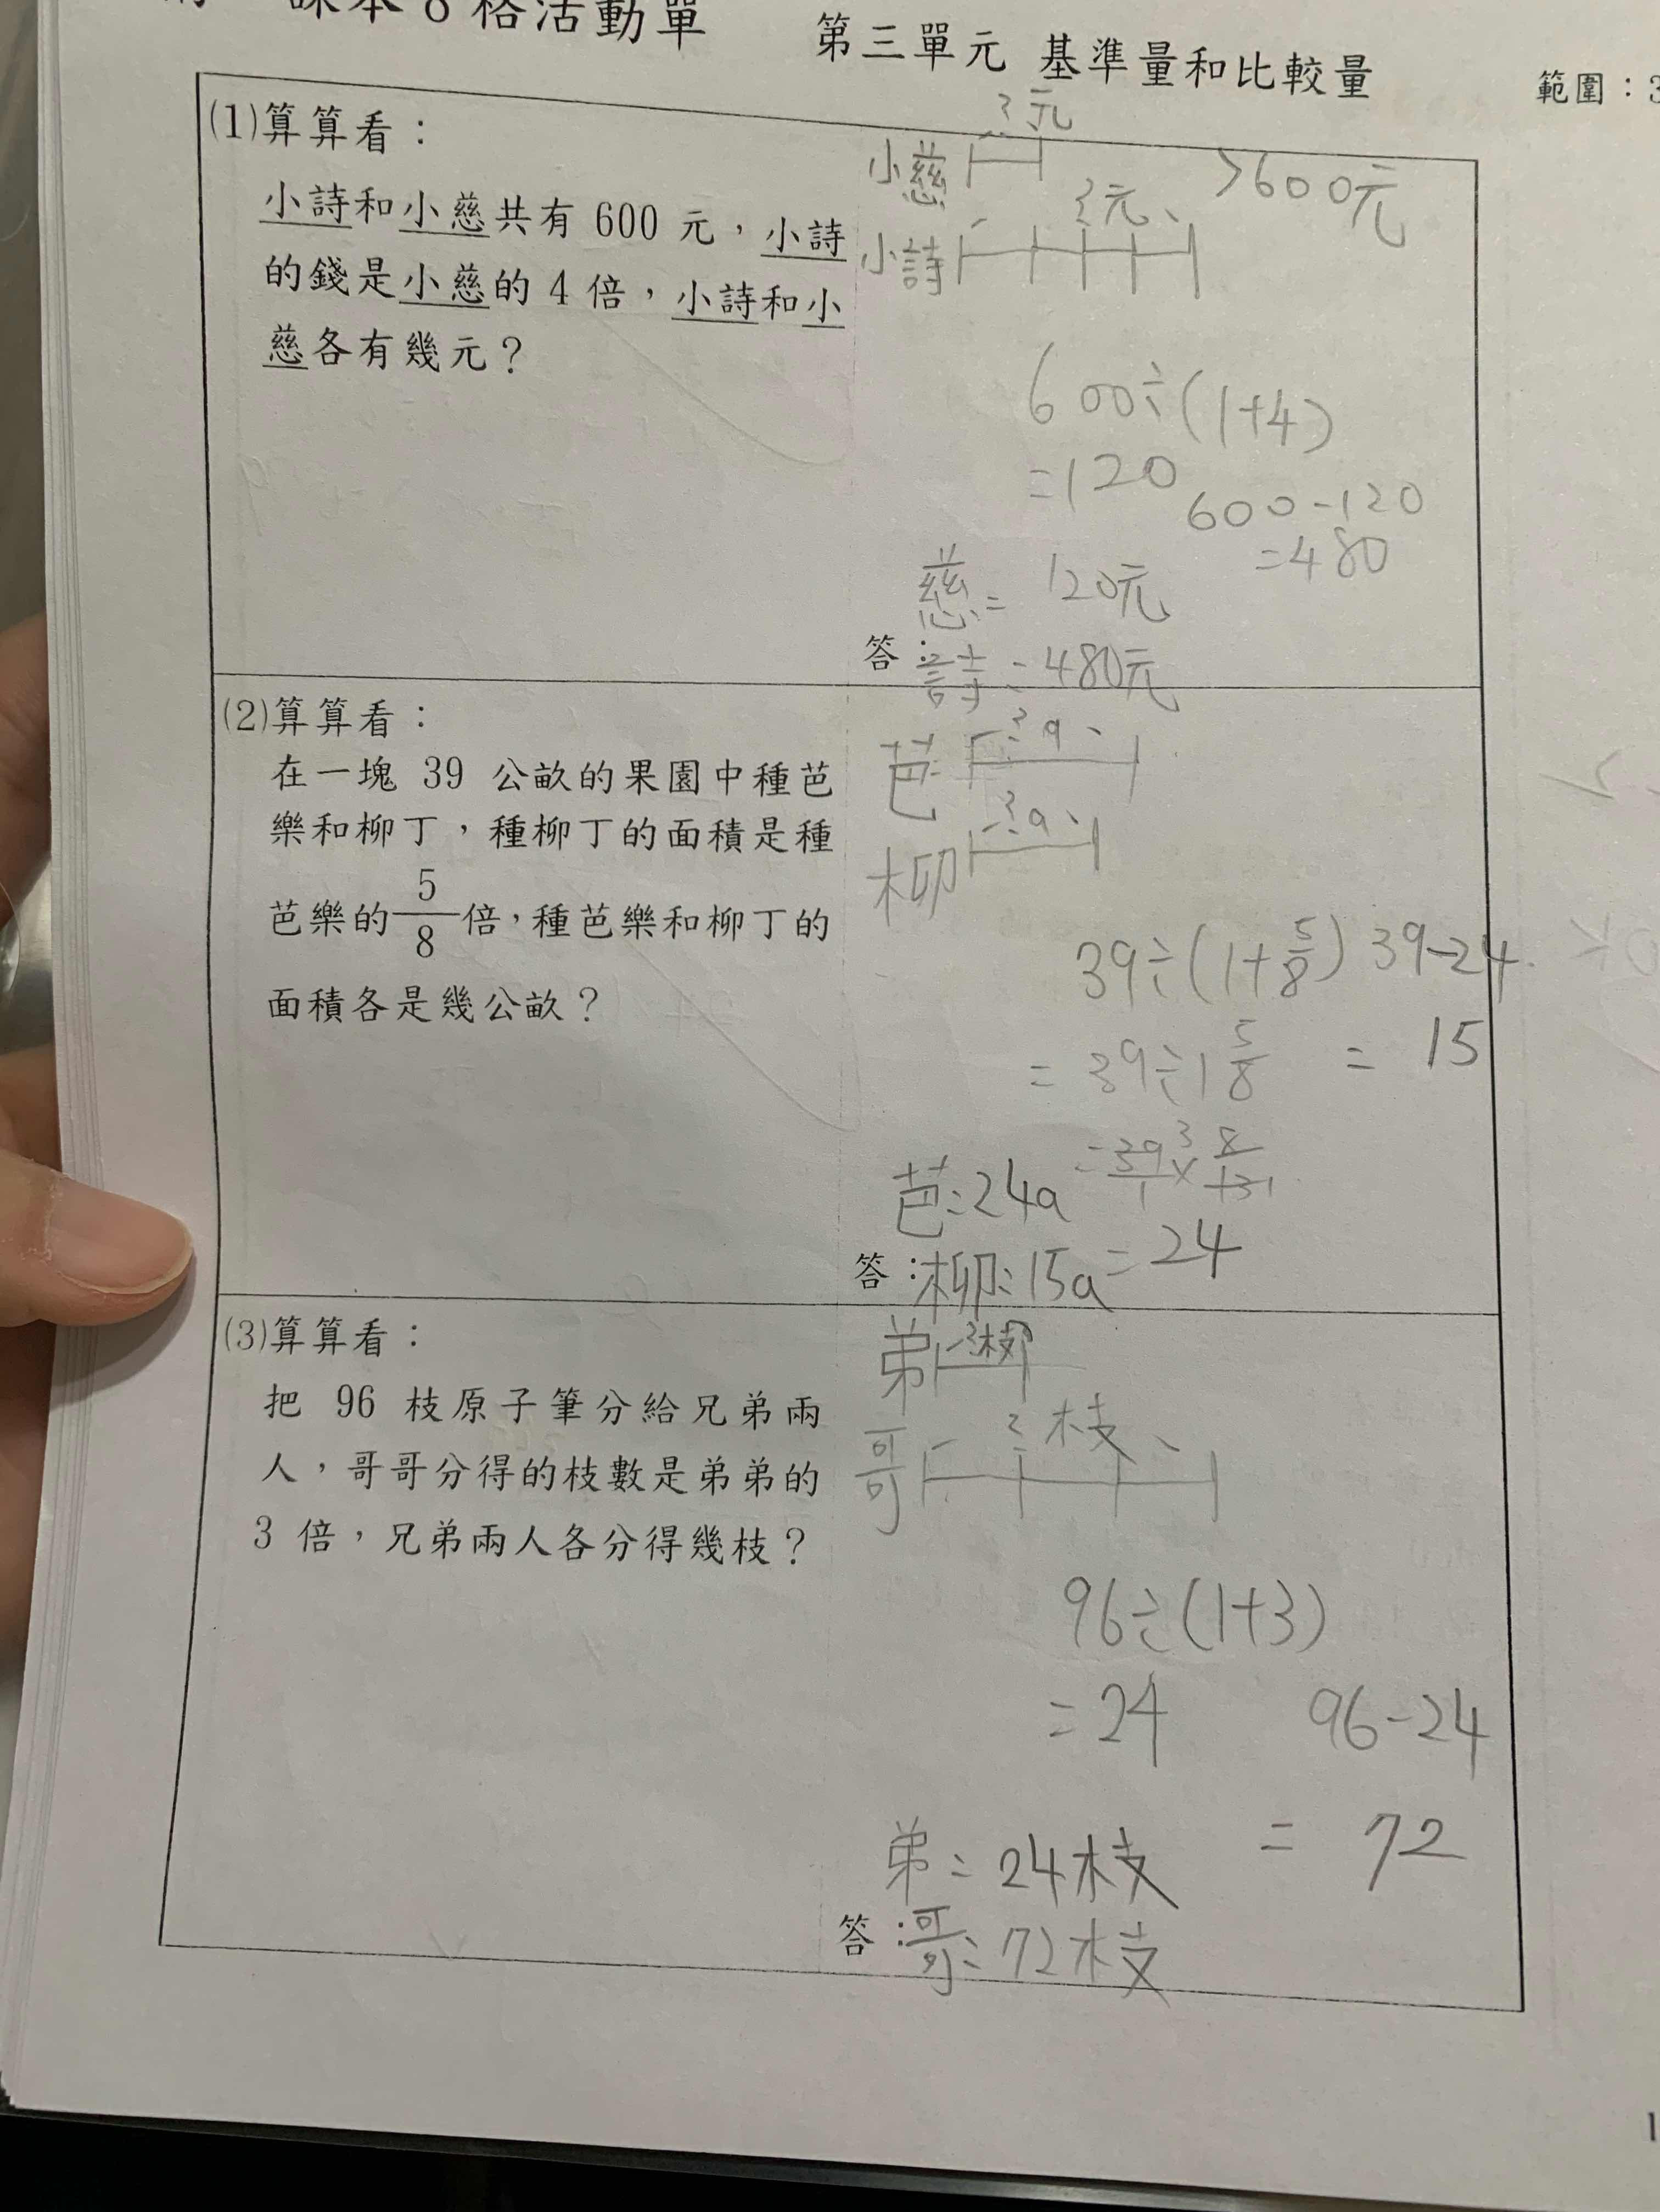 課本8格活動單
第三單元 基準量和比較量
範圍：3
(1)算算看：
小詩和小慈共有 600 元，小詩
的錢是小慈的 4 倍，小詩和小
慈各有幾元？
?元
小慈
?元
>600元
小詩
600÷(1+4)
=120
600-120
=480
慈=120元
答：詩=480元
(2)算算看：
在一塊 39 公畝的果園中種芭
樂和柳丁，種柳丁的面積是種
芭樂的5/8倍，種芭樂和柳丁的
面積各是幾公畝？
?a
芭
?a
柳
39÷(1+5/8)
39-24
=39÷1 5/8
=15
=39/1 3 × 8/13 1
=24
芭:24a
答：柳:15a
(3)算算看：
把 96 枝原子筆分給兄弟兩
人，哥哥分得的枝數是弟弟的
3 倍，兄弟兩人各分得幾枝？
弟 ?枝
?枝
哥
96÷(1+3)
=24
96-24
=72
弟:24枝
答：哥:72枝
1